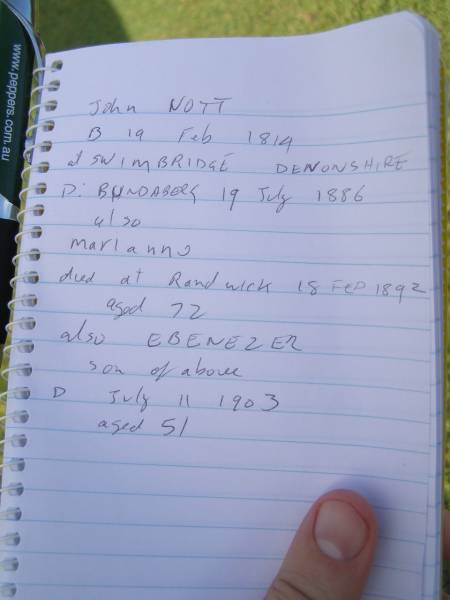 www.peppers.com.au
John NOTT
B 19 Feb 1814
at SWIMBRIDGE DENONSHIRE
D: BUNDABERG 19 July 1886
also
marianne
died at Randwick 18 FEB 1892
aged 72
also EBENEZER
son of above
D July 11 1903
aged 51